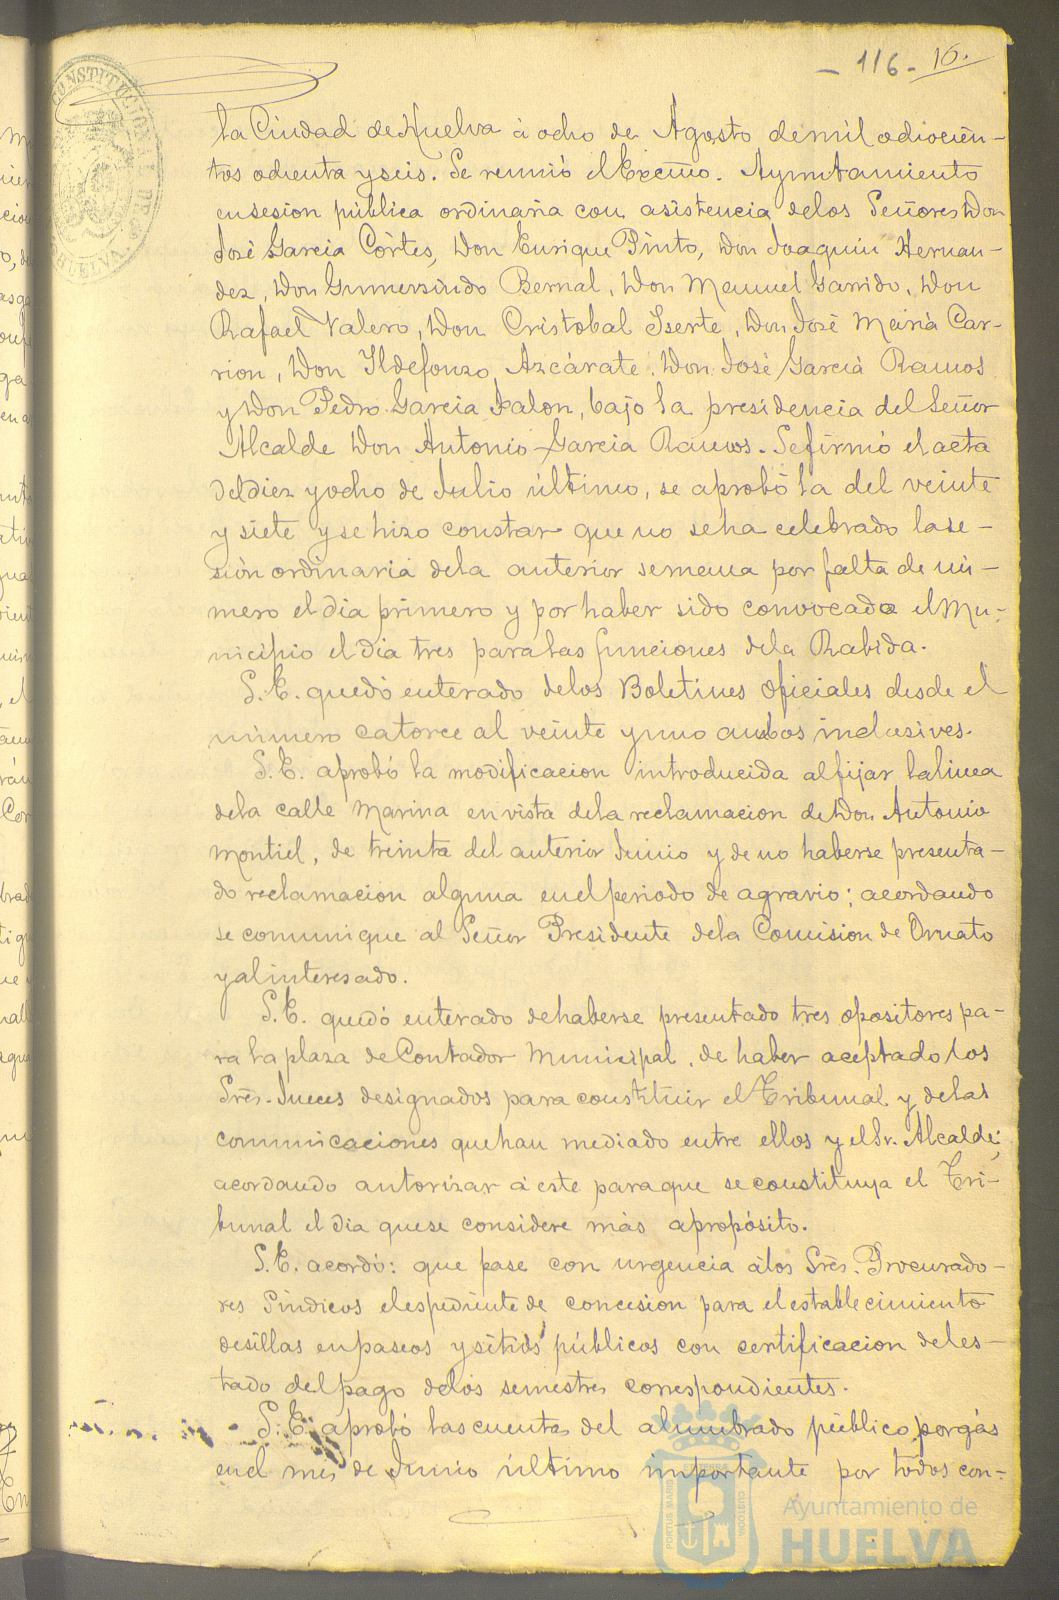 - 116 - 16.
CONSTITUCIONAL DE
HUELVA
la Ciudad de Huelva á ocho de Agosto de mil ochocien-
tos ochenta y seis. Se reunió el Excmo. Ayuntamiento
en sesion pública ordinaria con asistencia de los Señores Don
José Garcia Córtes, Don Enrique Pinto, Don Joaquin Hernan-
dez, Don Gumersindo Bernal, Don Manuel Garrido, Don
Rafael Valero, Don Cristobal Iserte, Don José Maria Car-
rion, Don Ildefonzo Azcárate, Don José Garcia Ramos
y Don Pedro Garcia Jalon, bajo la presidencia del Señor
Alcalde Don Antonio Garcia Ramos. Se firmó el acta
del diez y ocho de Julio último, se aprobó la del veinte
y siete y se hizo constar que no se ha celebrado la se-
sión ordinaria de la anterior semana por falta de nú-
mero el dia primero y por haber sido convocado el Mu-
nicipio el dia tres para las funciones de la Rabida.
S.E. quedó enterado de los Boletines oficiales desde el
número catorce al veinte y uno ambos inclusives.
S.E. aprobó la modificacion introducida al fijar la linea
de la calle Marina en vista de la reclamacion de Don Antonio
Montiel, de treinta del anterior Junio y de no haberse presenta-
do reclamación alguna en el periodo de agravio; acordando
se comunique al Señor Presidente de la Comision de Ornato
y al interesado.
S.E. quedó enterado de haberse presentado tres opositores pa-
ra la plaza de Contador Municipal, de haber aceptado los
Srēs. Jueces designados para constituir el Tribunal y de las
comunicaciones que han mediado entre ellos y el Sr. Alcalde;
acordando autorizar á este para que se constituya el Tri-
bunal el dia que se considere más apropósito.
S.E. acordó: que pase con urgencia á los Srēs. Procurado-
res Síndicos el espediente de concesion para el establecimiento
de sillas en paseos y sitios públicos con certificacion del es-
tado del pago de los semestres correspondientes.
S.E. aprobó las cuentas del alumbrado público por gás
en el mes de Junio último importante por todos con-
PORTUS MARIS
CUSTODIA
Ayuntamiento de
HUELVA